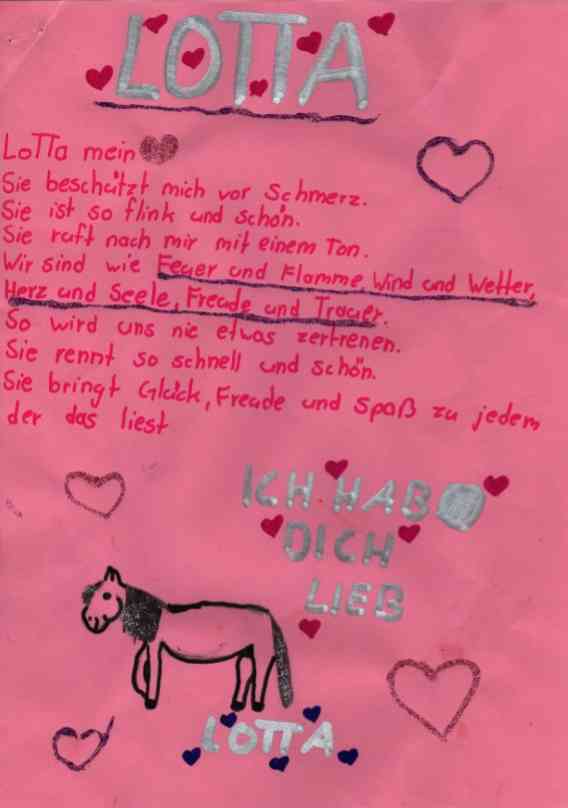 LOTTA
LoTTa mein
Sie beschützt mich vor Schmerz.
Sie ist so flink und schön.
Sie ruft nach mir mit einem Ton.
Wir sind wie Feuer und Flamme, Wind und Wetter,
Herz und Seele, Freude und Trauer.
So wird uns nie etwas zertrenen.
Sie rennt so schnell und schön.
Sie bringt Glück, Freude und Spaß zu jedem
der das liest
ICH HAB
DICH
LIEB
LOTTA